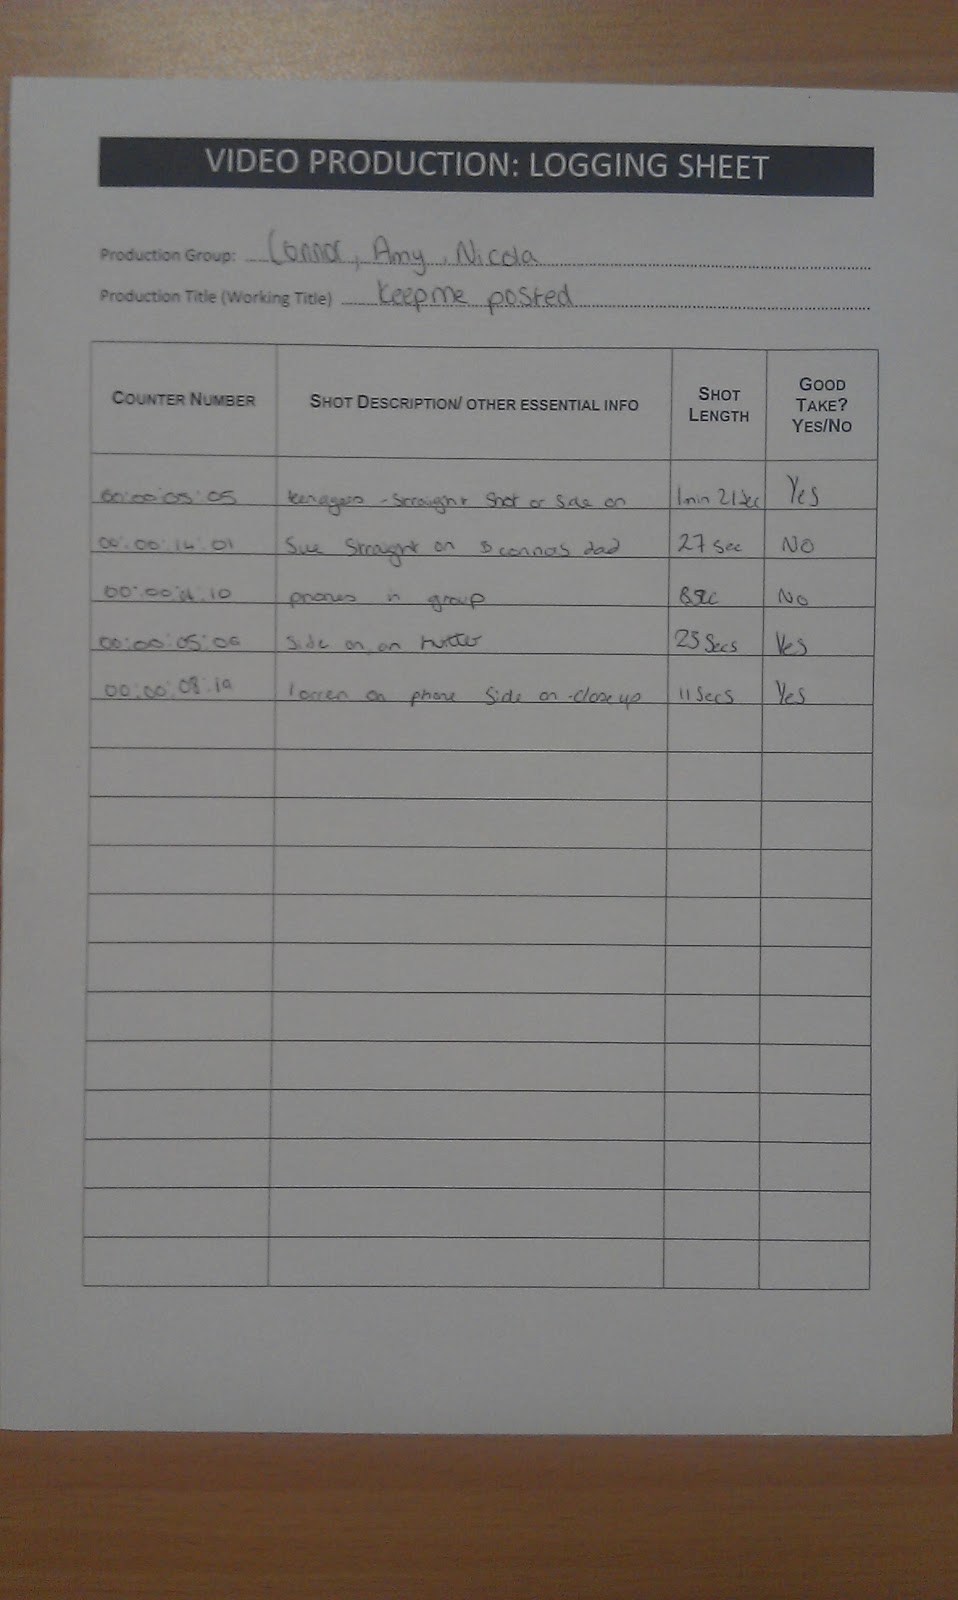 VIDEO PRODUCTION: LOGGING SHEET
Production Group: Connor, Amy, Nicola
Production Title (Working Title) Keep me posted
COUNTER NUMBER SHOT DESCRIPTION/ OTHER ESSENTIAL INFO SHOT LENGTH GOOD TAKE? YES/NO
00:00:05:05 teenagers - straight shot or side on 1min 21sec Yes
00:00:14:01 straight on connors dad 27 sec NO
phones in group 8sec No
00:00:05:06 Side on on twitter Yes
00:00:08:19 on phone side on - close up 11 Secs Yes